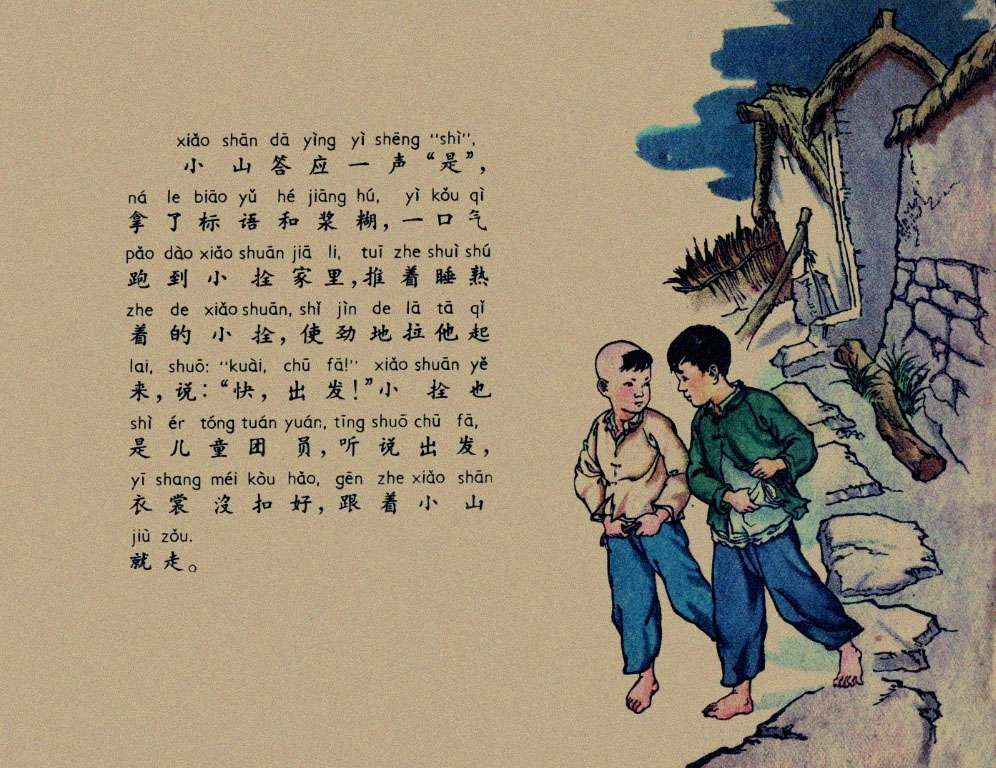 xiǎo shān dā yìng yì shēng "shì",
小山答应一声“是”，
ná le biāo yǔ hé jiāng hú, yì kǒu qì
拿了标语和浆糊，一口气
pǎo dào xiǎo shuān jiā li, tuī zhe shuì shú
跑到小拴家里，推着睡熟
zhe de xiǎo shuān, shǐ jìn de lā tā qǐ
着的小拴，使劲地拉他起
lai, shuō: "kuài, chū fā!" xiǎo shuān yě
来，说：“快，出发！”小拴也
shì ér tóng tuán yuán, tīng shuō chū fā,
是儿童团员，听说出发，
yī shang méi kòu hǎo, gēn zhe xiǎo shān
衣裳沒扣好，跟着小山
jiù zǒu.
就走。